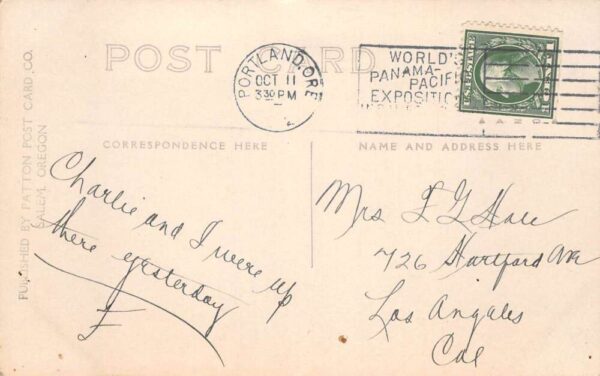 POST CARD
PORTLAND, ORE
OCT 11
3 30 PM
WORLD'S
PANAMA-
PACIFI
EXPOSITIO
PUBLISHED BY PATTON POST CARD CO.
SALEM, OREGON
CORRESPONDENCE HERE
NAME AND ADDRESS HERE
Charlie and I were up
there yesterday
F
Mrs
726 Hartford Ave
Los Angales
Cal